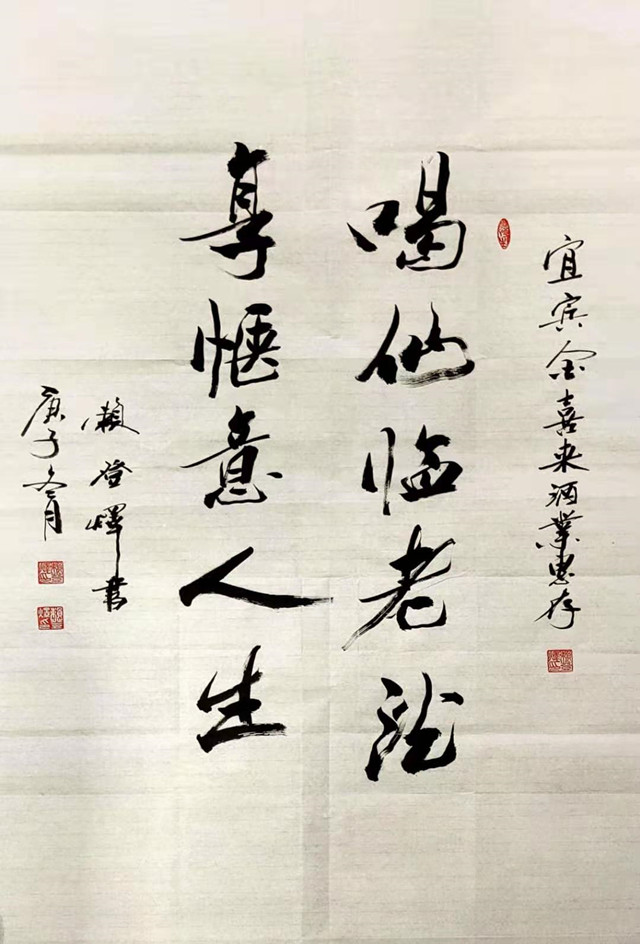 宜宾金喜来酒業惠存
喝仙临老池
享惬意人生
赖登燡書
庚子冬月